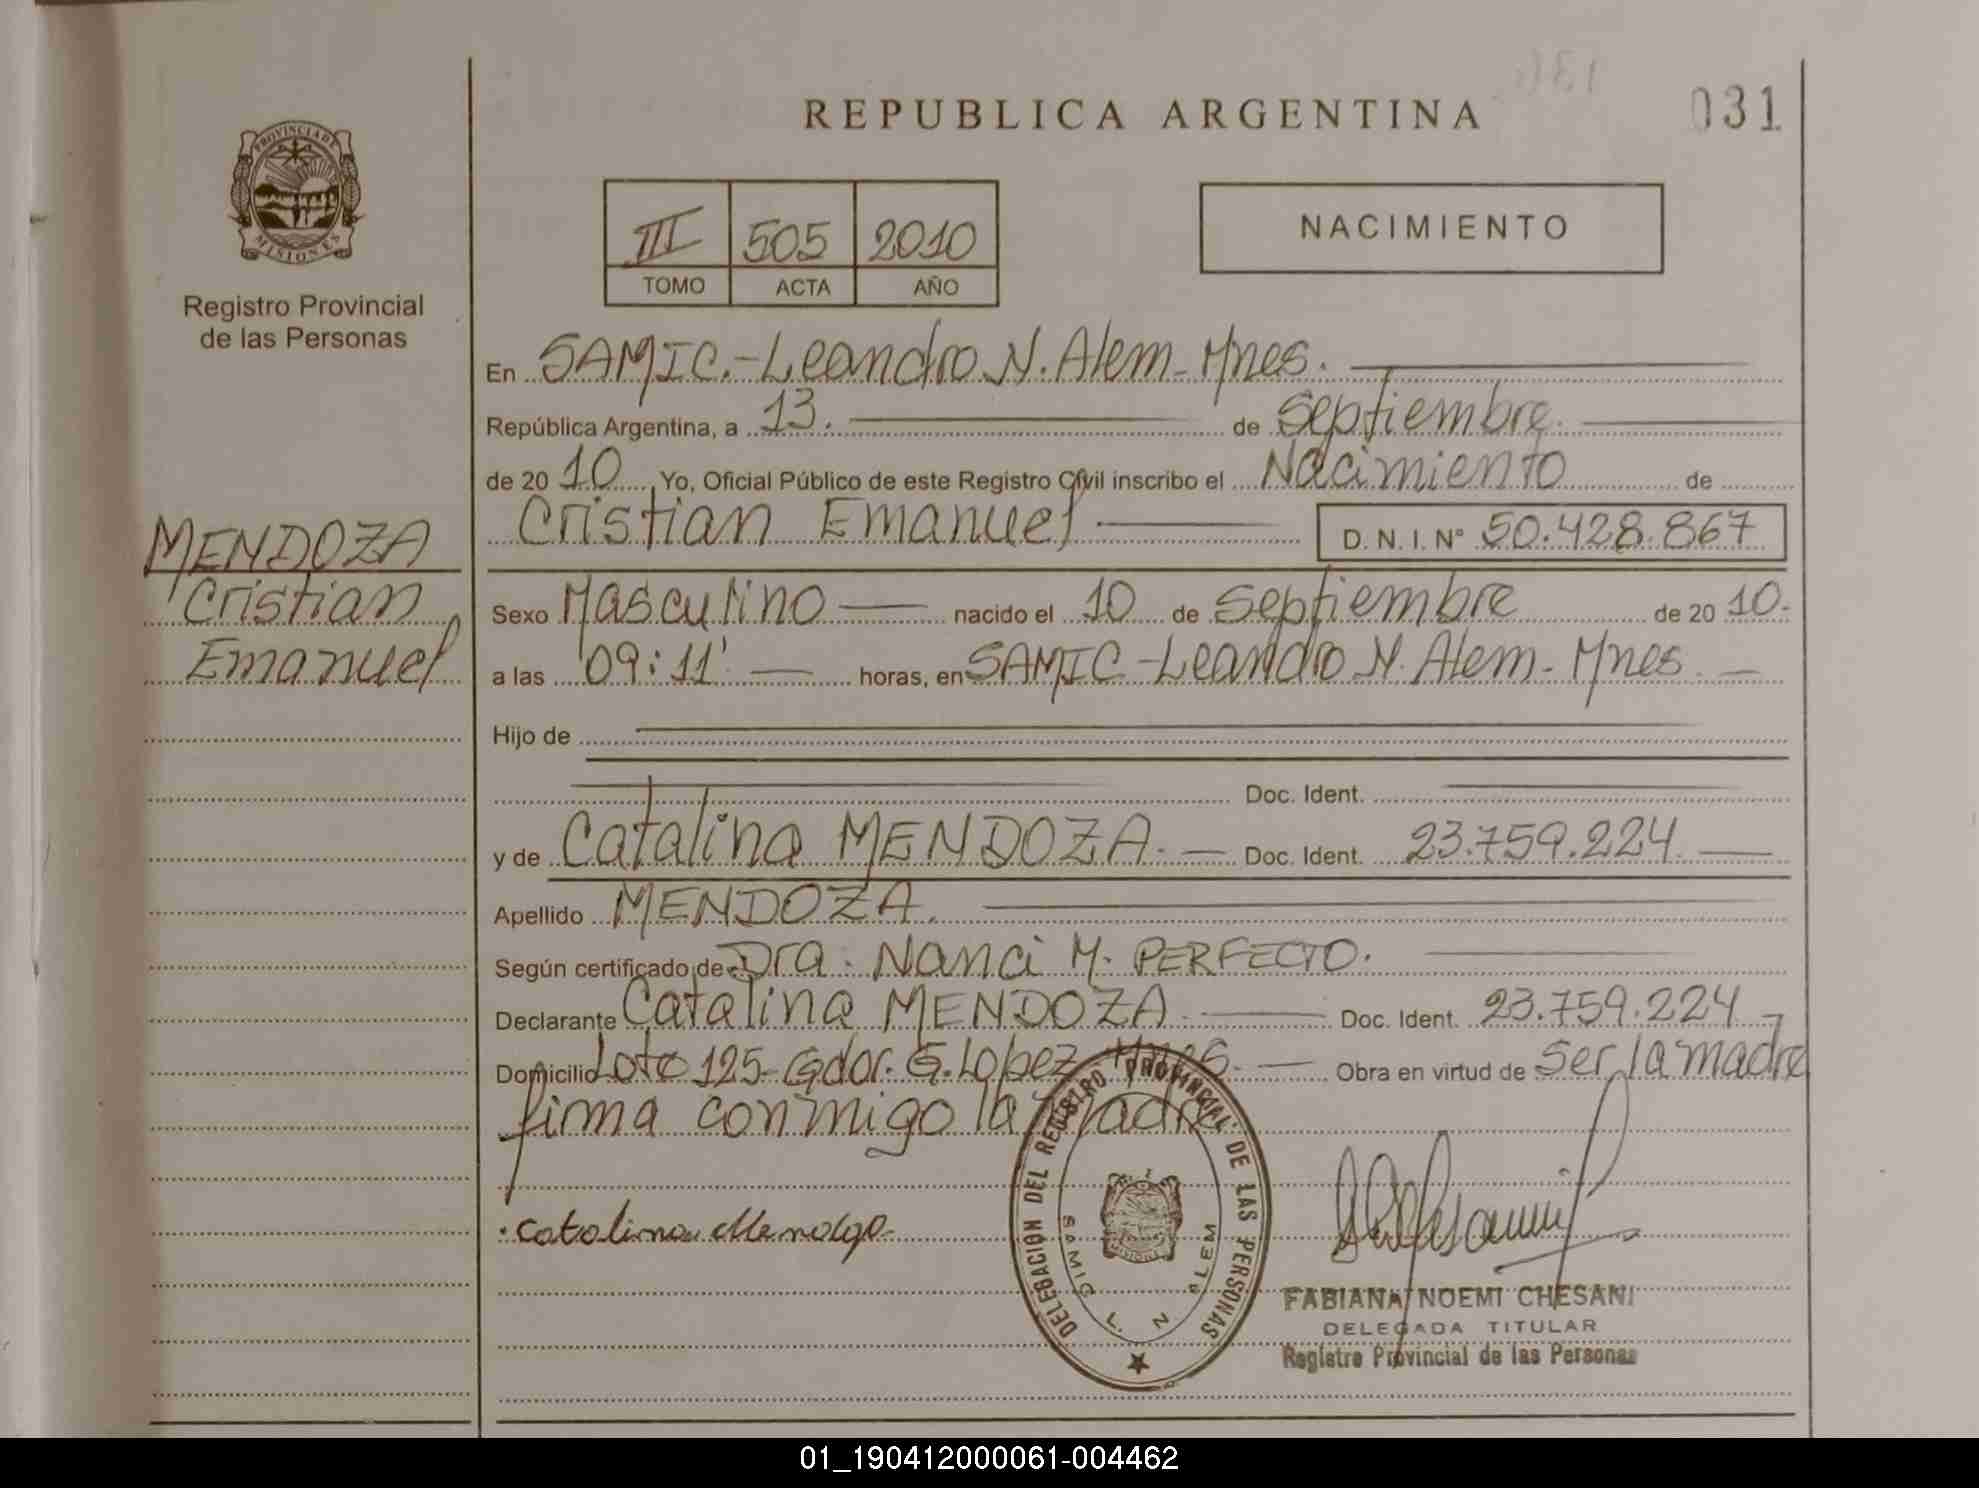 REPUBLICA ARGENTINA
031
PROVINCIA DE MISIONES
Registro Provincial
de las Personas
III 505 2010
TOMO ACTA AÑO
NACIMIENTO
En SAMIC.-Leandro N. Alem-Mnes.
República Argentina, a 13. de Septiembre.
de 20 10 Yo, Oficial Público de este Registro Civil inscribo el Nacimiento de
Cristian Emanuel D. N. I. N° 50.428.867
MENDOZA
Cristian
Emanuel
Sexo Masculino nacido el 10 de Septiembre de 20 10.
a las 09:11' horas, en SAMIC-Leandro N. Alem-Mnes.
Hijo de
Doc. Ident.
y de Catalina MENDOZA. Doc. Ident. 23.759.224
Apellido MENDOZA.
Según certificado de Dra. Nanci M. PERFECTO.
Declarante Catalina MENDOZA Doc. Ident. 23.759.224
Domicilio Loto 125-Gdor. G. Lopez Mnes. Obra en virtud de Ser la madre
firma conmigo la madre
Catalina Mendoza
DELEGACIÓN DEL REGISTRO PROVINCIAL DE LAS PERSONAS
SAMIC L. N ALEM
FABIANA NOEMI CHESANI
DELEGADA TITULAR
Registro Provincial de las Personas
01_190412000061-004462